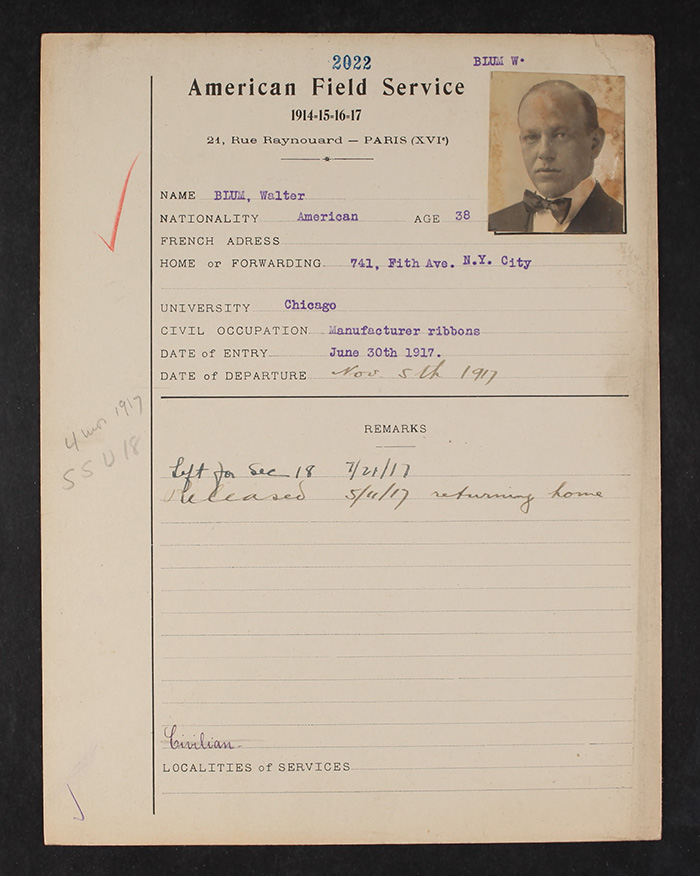 2022
BLUM W.
American Field Service
1914-15-16-17
21, Rue Raynouard — PARIS (XVIe)
NAME BLUM, Walter
NATIONALITY American AGE 38
FRENCH ADRESS
HOME or FORWARDING 741, Fith Ave. N.Y. City
UNIVERSITY Chicago
CIVIL OCCUPATION Manufacturer ribbons
DATE of ENTRY June 30th 1917.
DATE of DEPARTURE Nov 5th 1917
4 mos 1917
SSU 18
REMARKS
Left for Sec 18 7/21/17
Released 5/11/17 returning home
Civilian
LOCALITIES of SERVICES